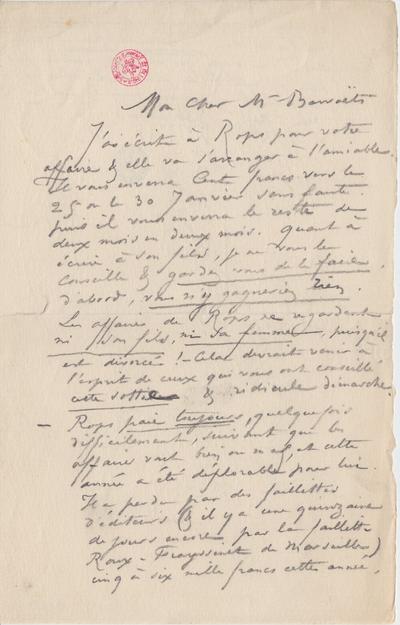 Mon Cher Mr Bonvoëts
J'ai écrit à Rops pour votre
affaire & elle va s'arranger à l'amiable
Il vous enverra Cent francs vers le
25 ou le 30 Janvier sans faute.
puis il vous enverra le reste de
deux mois en deux mois. Quant à
écrire à son fils, je ne vous le
conseille & gardez vous de le faire,
d'abord, vous n'y gagneriez rien.
Les affaires de Rops ne regardent
ni son fils, ni sa femme, puisqu'il
est divorcé ! – Cela devrait venir à
l'esprit de ceux qui vous ont conseillé
cette sotte & ridicule démarche
– Rops paie toujours, quelquefois
difficilement, suivant que les
affaires vont bien ou mal, et cette
année a été déplorable pour lui.
Il a perdu par des faillites
d'éditeurs (& il y a une quinzaine
de jours encore par la faillite
Roux-Frayssinet de Marseille)
cinq à six mille francs cette année,